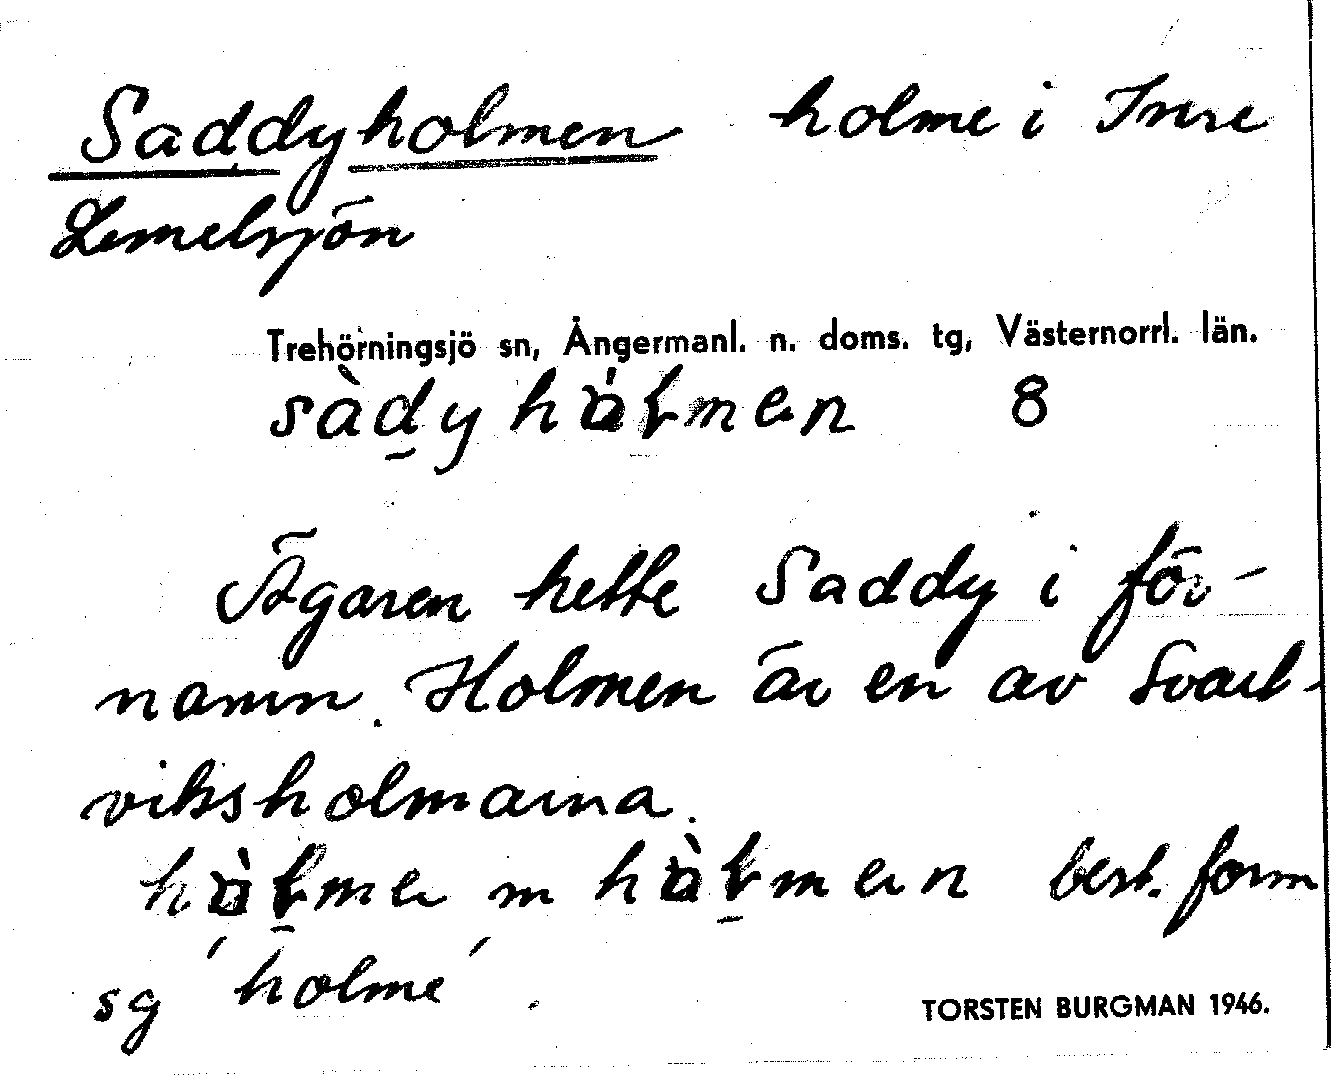 Saddyholmen holme i Inre
Lemelsjön
Trehörningsjö sn, Ångermanl. n. doms. tg, Västernorrl. län.
sàdy 8
Ägaren hette Saddy i för-
namn. Holmen är en av Svart-
viksholmarna.
m best. form
sg ´holme´.
TORSTEN BURGMAN 1946.